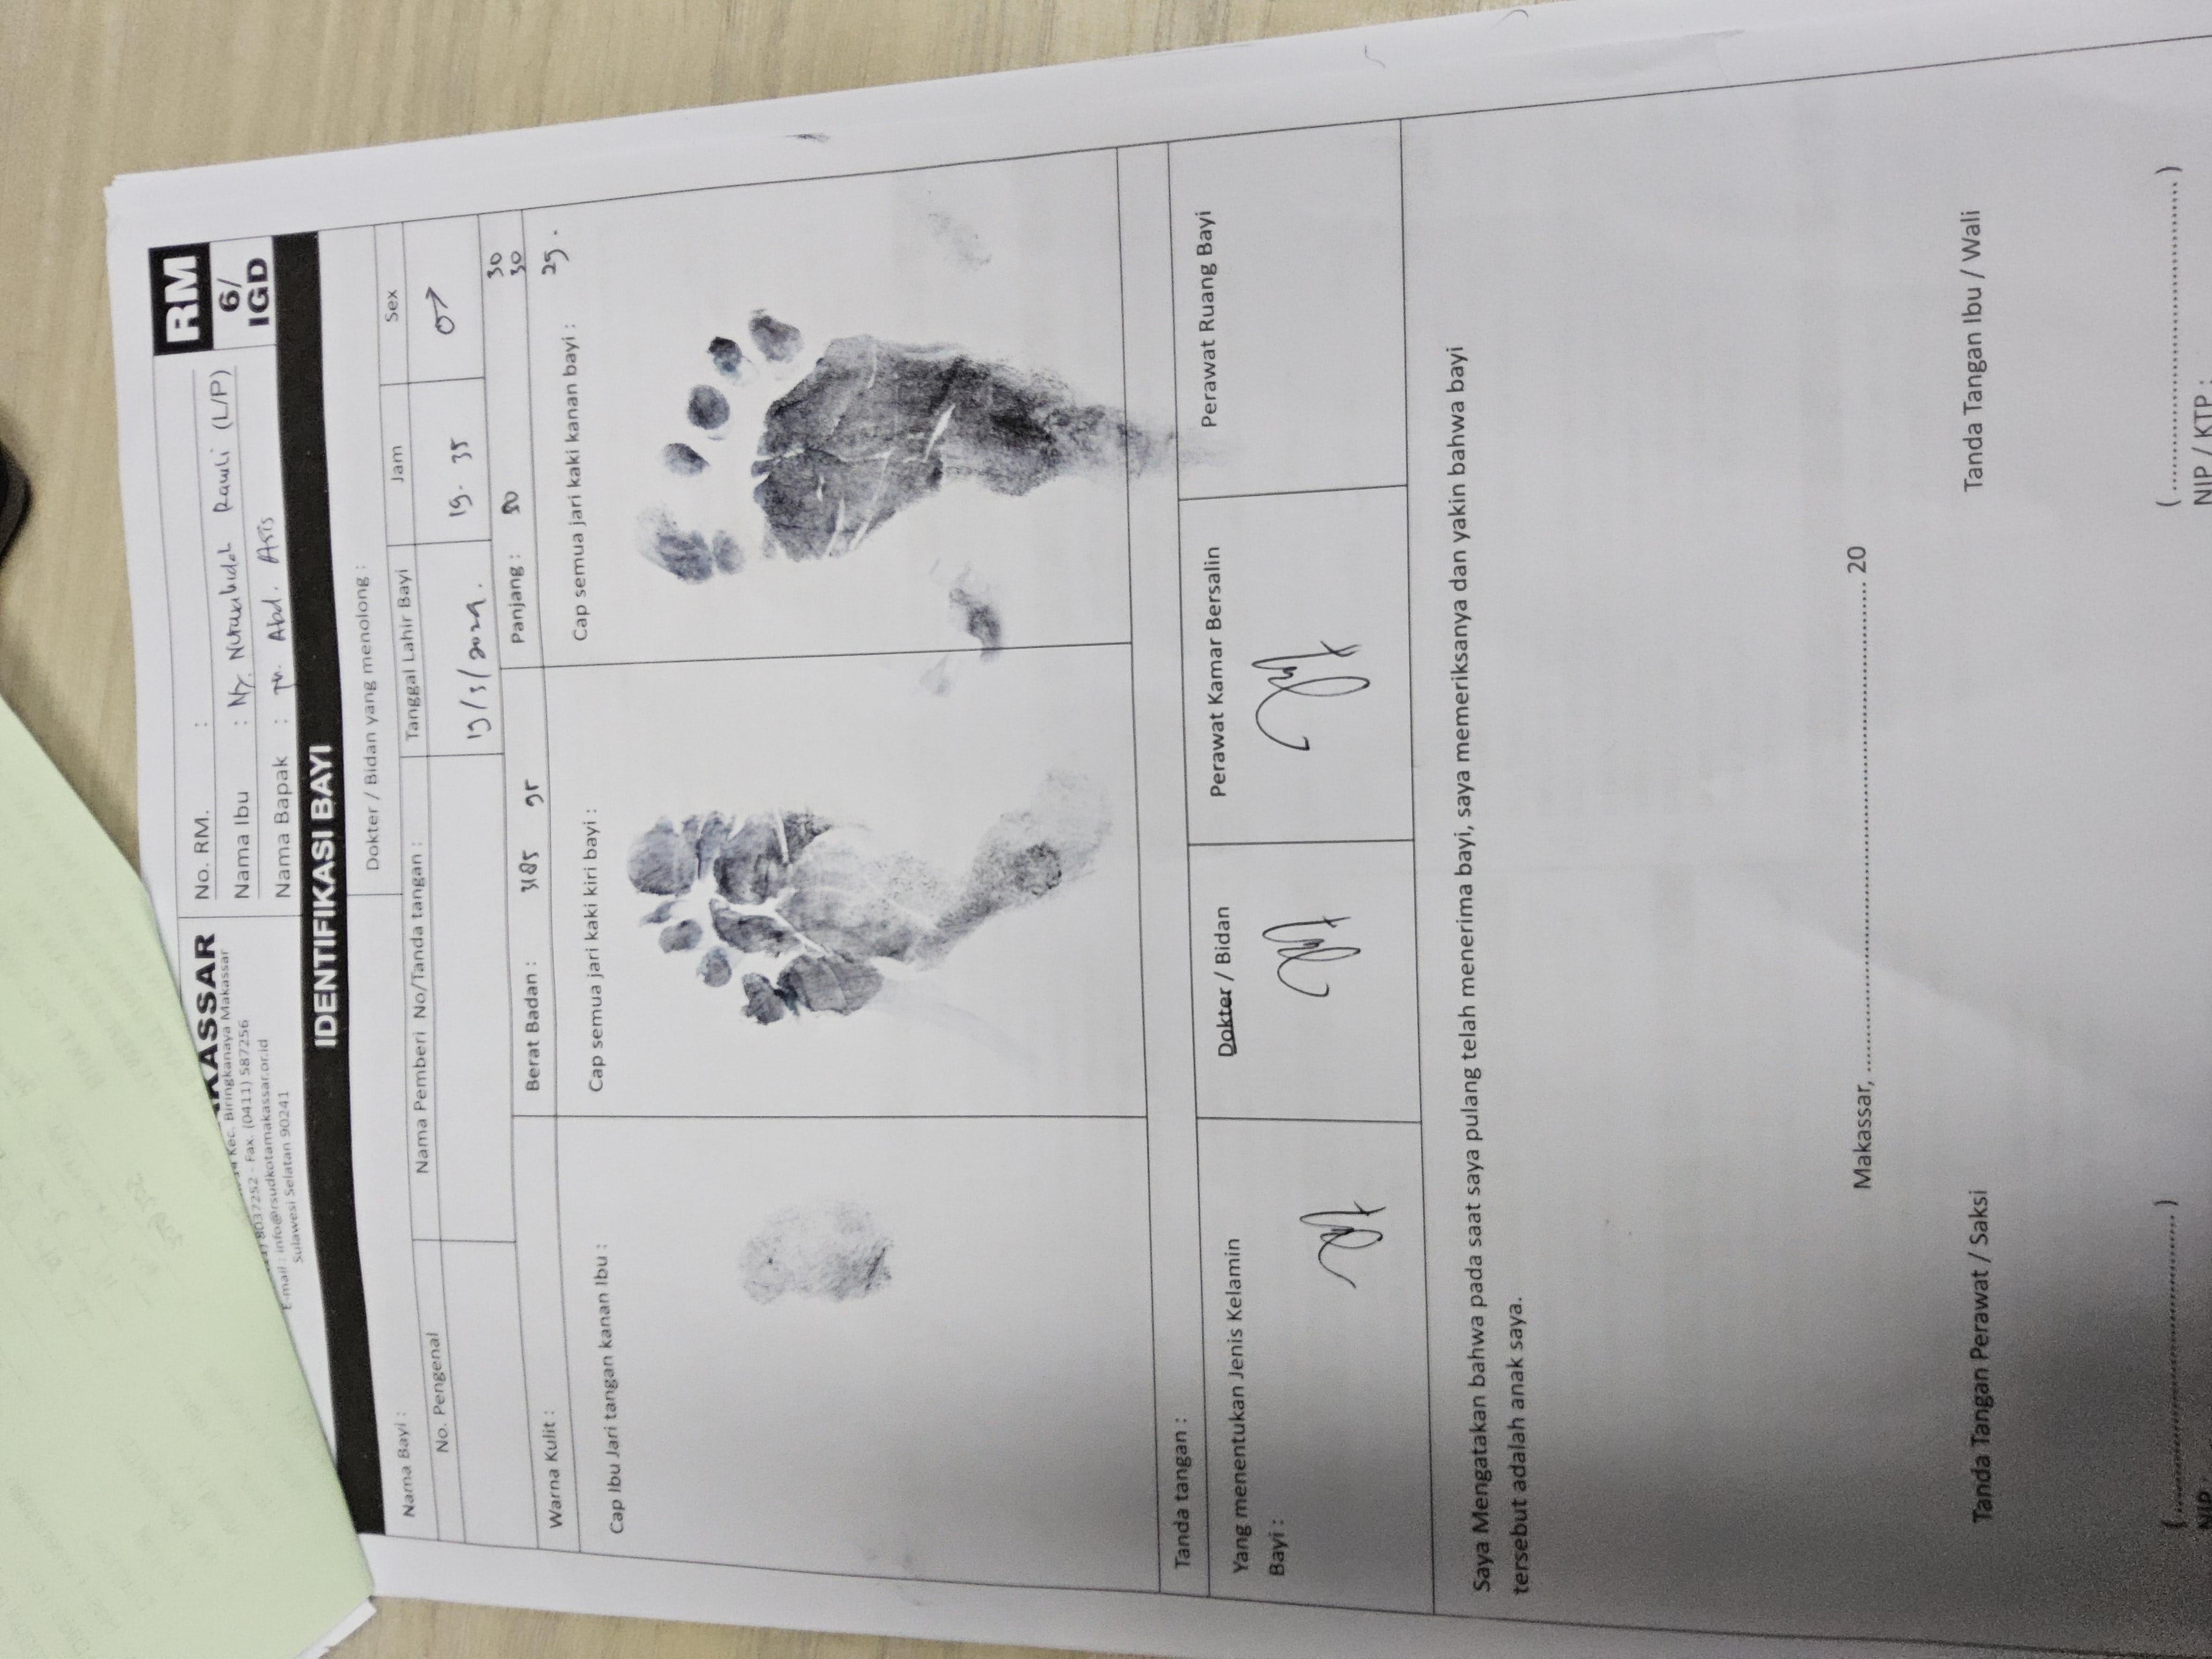 KASSAR
Kec. Biringkanaya Makassar
8037252 - Fax. (0411) 587256
E-mail : info@rsudkotamakassar.or.id
Sulawesi Selatan 90241
No. RM. :
Nama Ibu : Ny. Nurwahidah Ramli (L/P)
Nama Bapak : Tn. Abd. Asis
RM
6/
IGD
IDENTIFIKASI BAYI
Nama Bayi :
Dokter / Bidan yang menolong :
No. Pengenal
Nama Pemberi No/Tanda tangan :
Tanggal Lahir Bayi
Jam
Sex
19/3/2024.
19. 35
♂
Warna Kulit :
Berat Badan : 3185 gr
Panjang : 50
30
30
29.
Cap Ibu Jari tangan kanan Ibu :
Cap semua jari kaki kiri bayi :
Cap semua jari kaki kanan bayi :
Tanda tangan :
Yang menentukan Jenis Kelamin
Bayi :
Dokter / Bidan
Perawat Kamar Bersalin
Perawat Ruang Bayi
Saya Mengatakan bahwa pada saat saya pulang telah menerima bayi, saya memeriksanya dan yakin bahwa bayi
tersebut adalah anak saya.
Makassar, .......................................................................... 20
Tanda Tangan Perawat / Saksi
Tanda Tangan Ibu / Wali
(.............................................)
(.............................................)
NIP :
NIP / KTP :